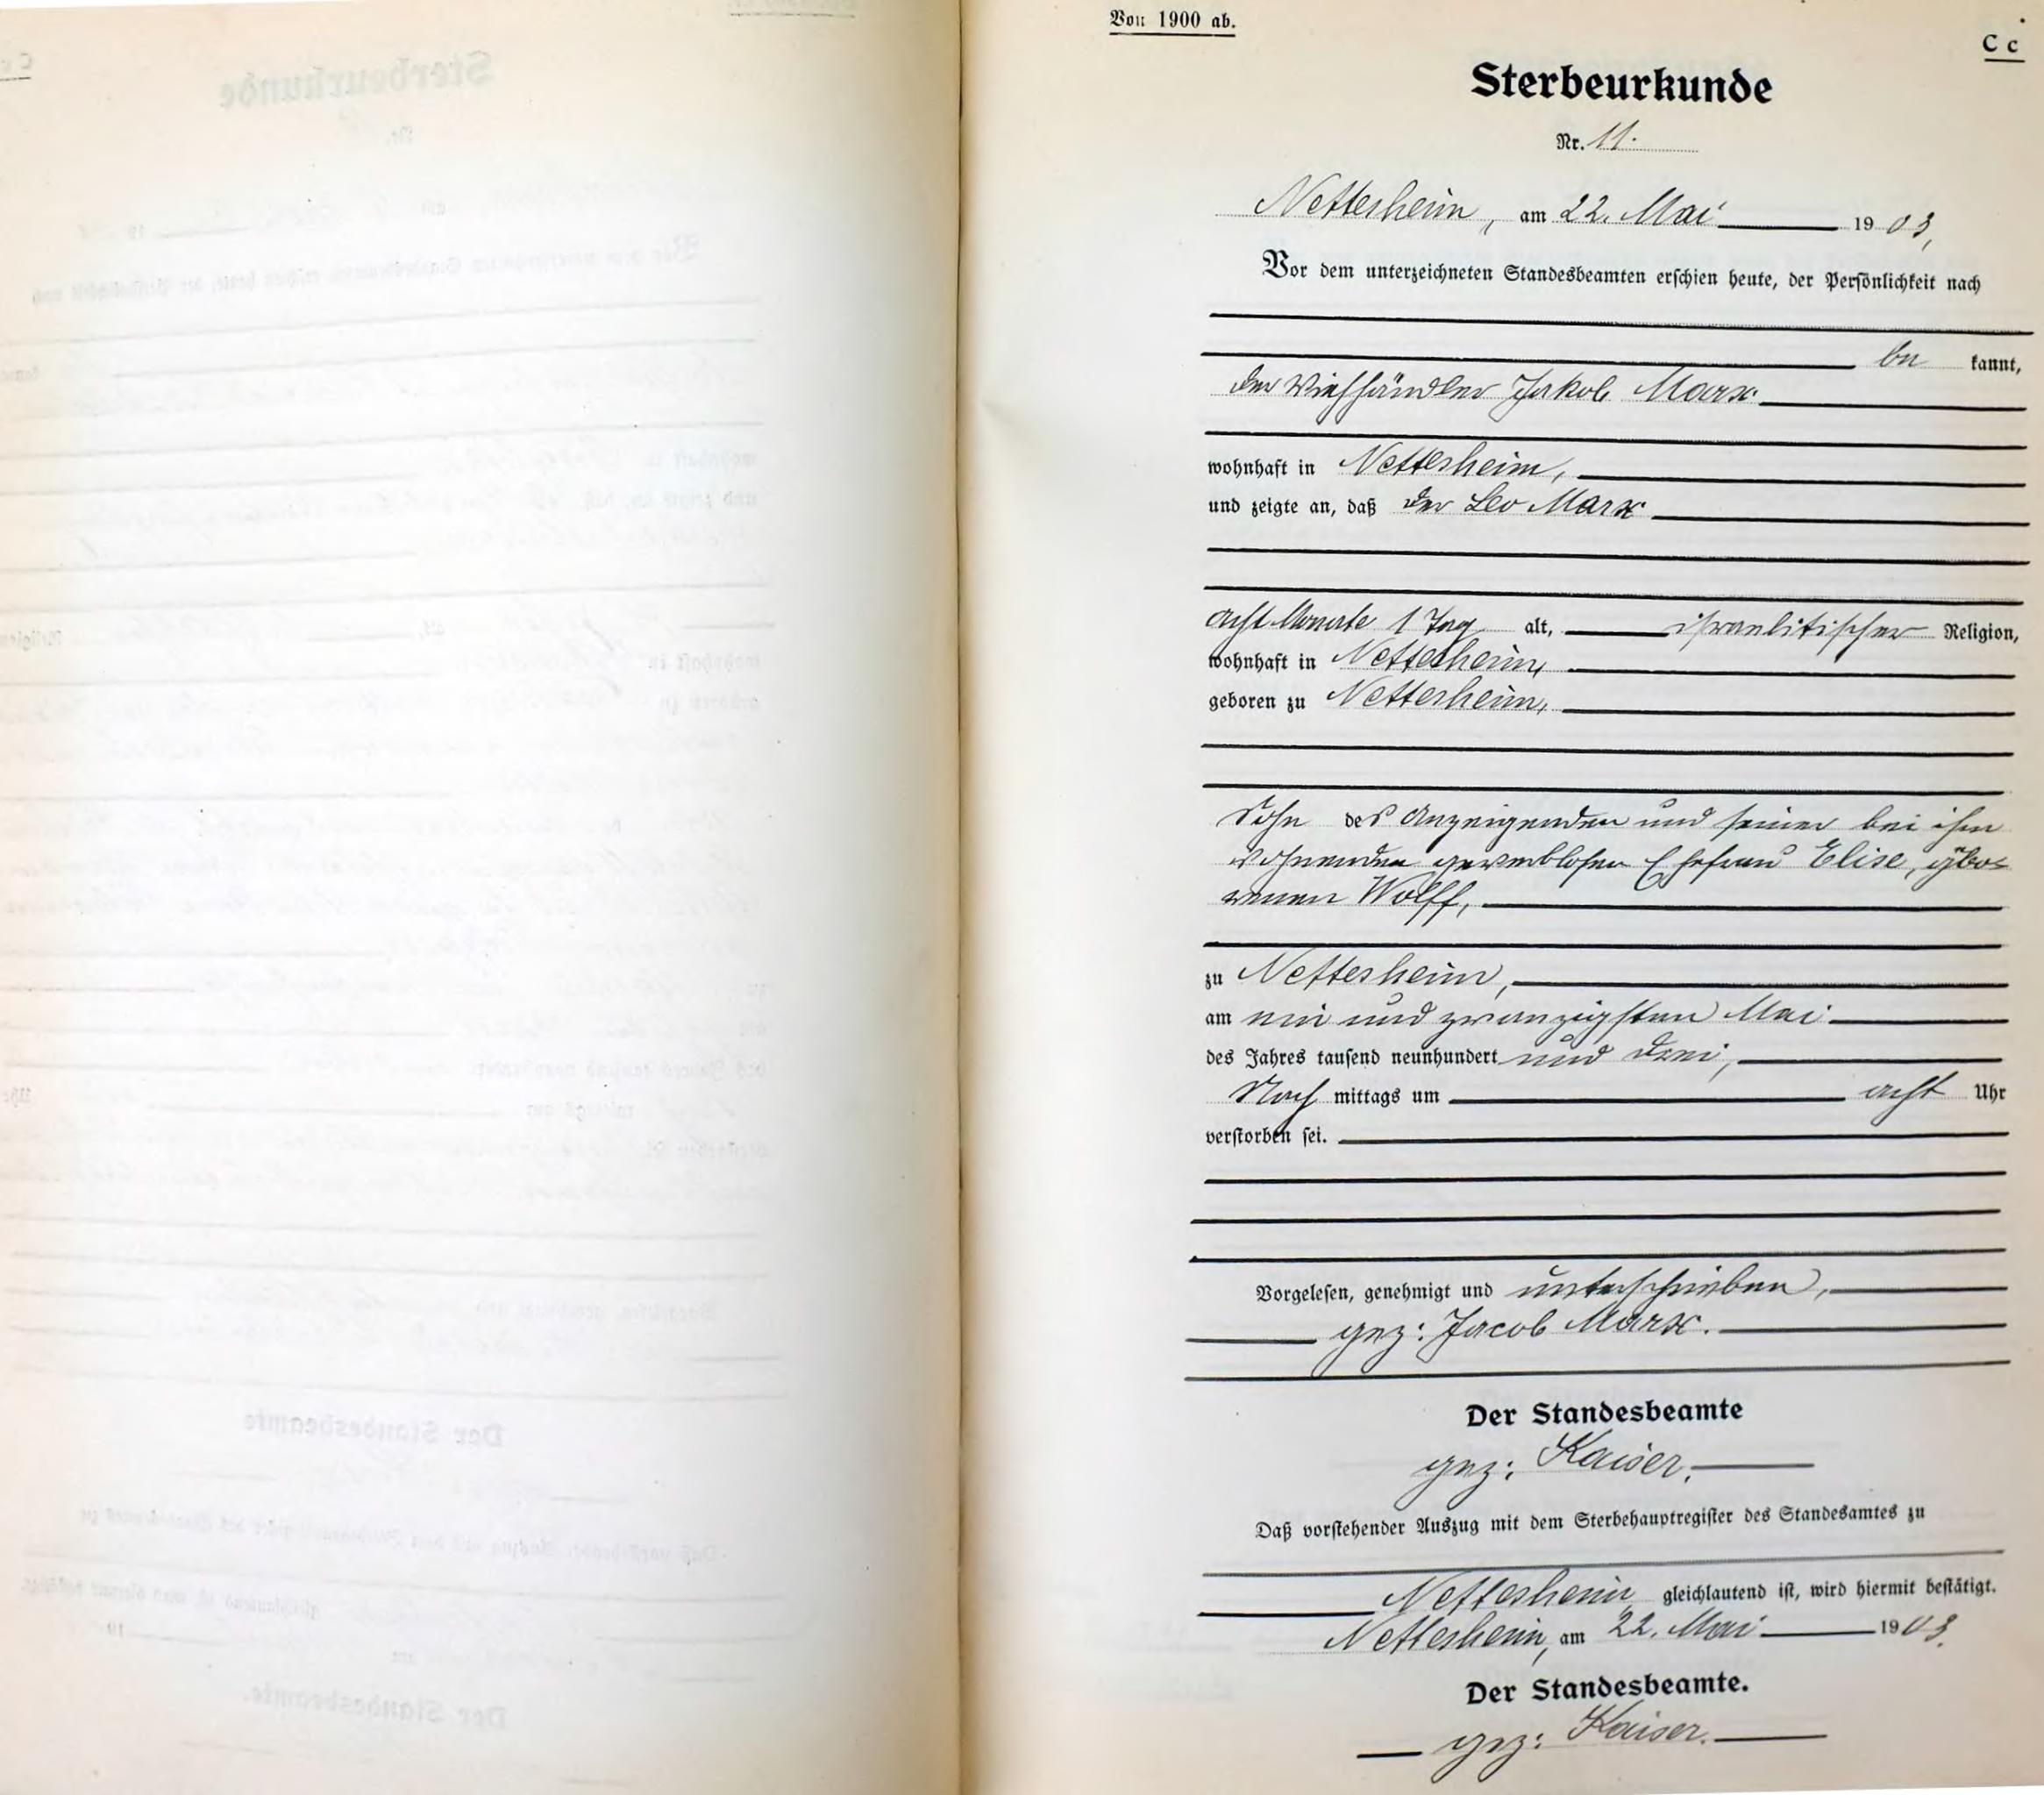 Von 1900 ab.
C c
Sterbeurkunde
Nr. 11.
Nettersheim, am 22. Mai 1903,
Vor dem unterzeichneten Standesbeamten erschien heute, der Persönlichkeit nach
be kannt,
der Viehhändler Jakob Marx
wohnhaft in Nettersheim,
und zeigte an, daß der Leo Marx
acht Monate 1 Tag alt, israelitischer Religion,
wohnhaft in Nettersheim,
geboren zu Nettersheim,
Sohn des Anzeigenden und seiner bei ihm
wohnenden gewerblosen Ehefrau Elise, gebo-
renen Wolff,
zu Nettersheim,
am ein und zwanzigsten Mai
des Jahres tausend neunhundert und drei,
Nach mittags um acht Uhr
verstorben sei.
Vorgelesen, genehmigt und unterschrieben,
gez: Jacob Marx.
Der Standesbeamte
gez: Kaiser.
Daß vorstehender Auszug mit dem Sterbehauptregister des Standesamtes zu
Nettersheim gleichlautend ist, wird hiermit bestätigt.
Nettersheim, am 22. Mai 1903.
Der Standesbeamte.
gez: Kaiser.